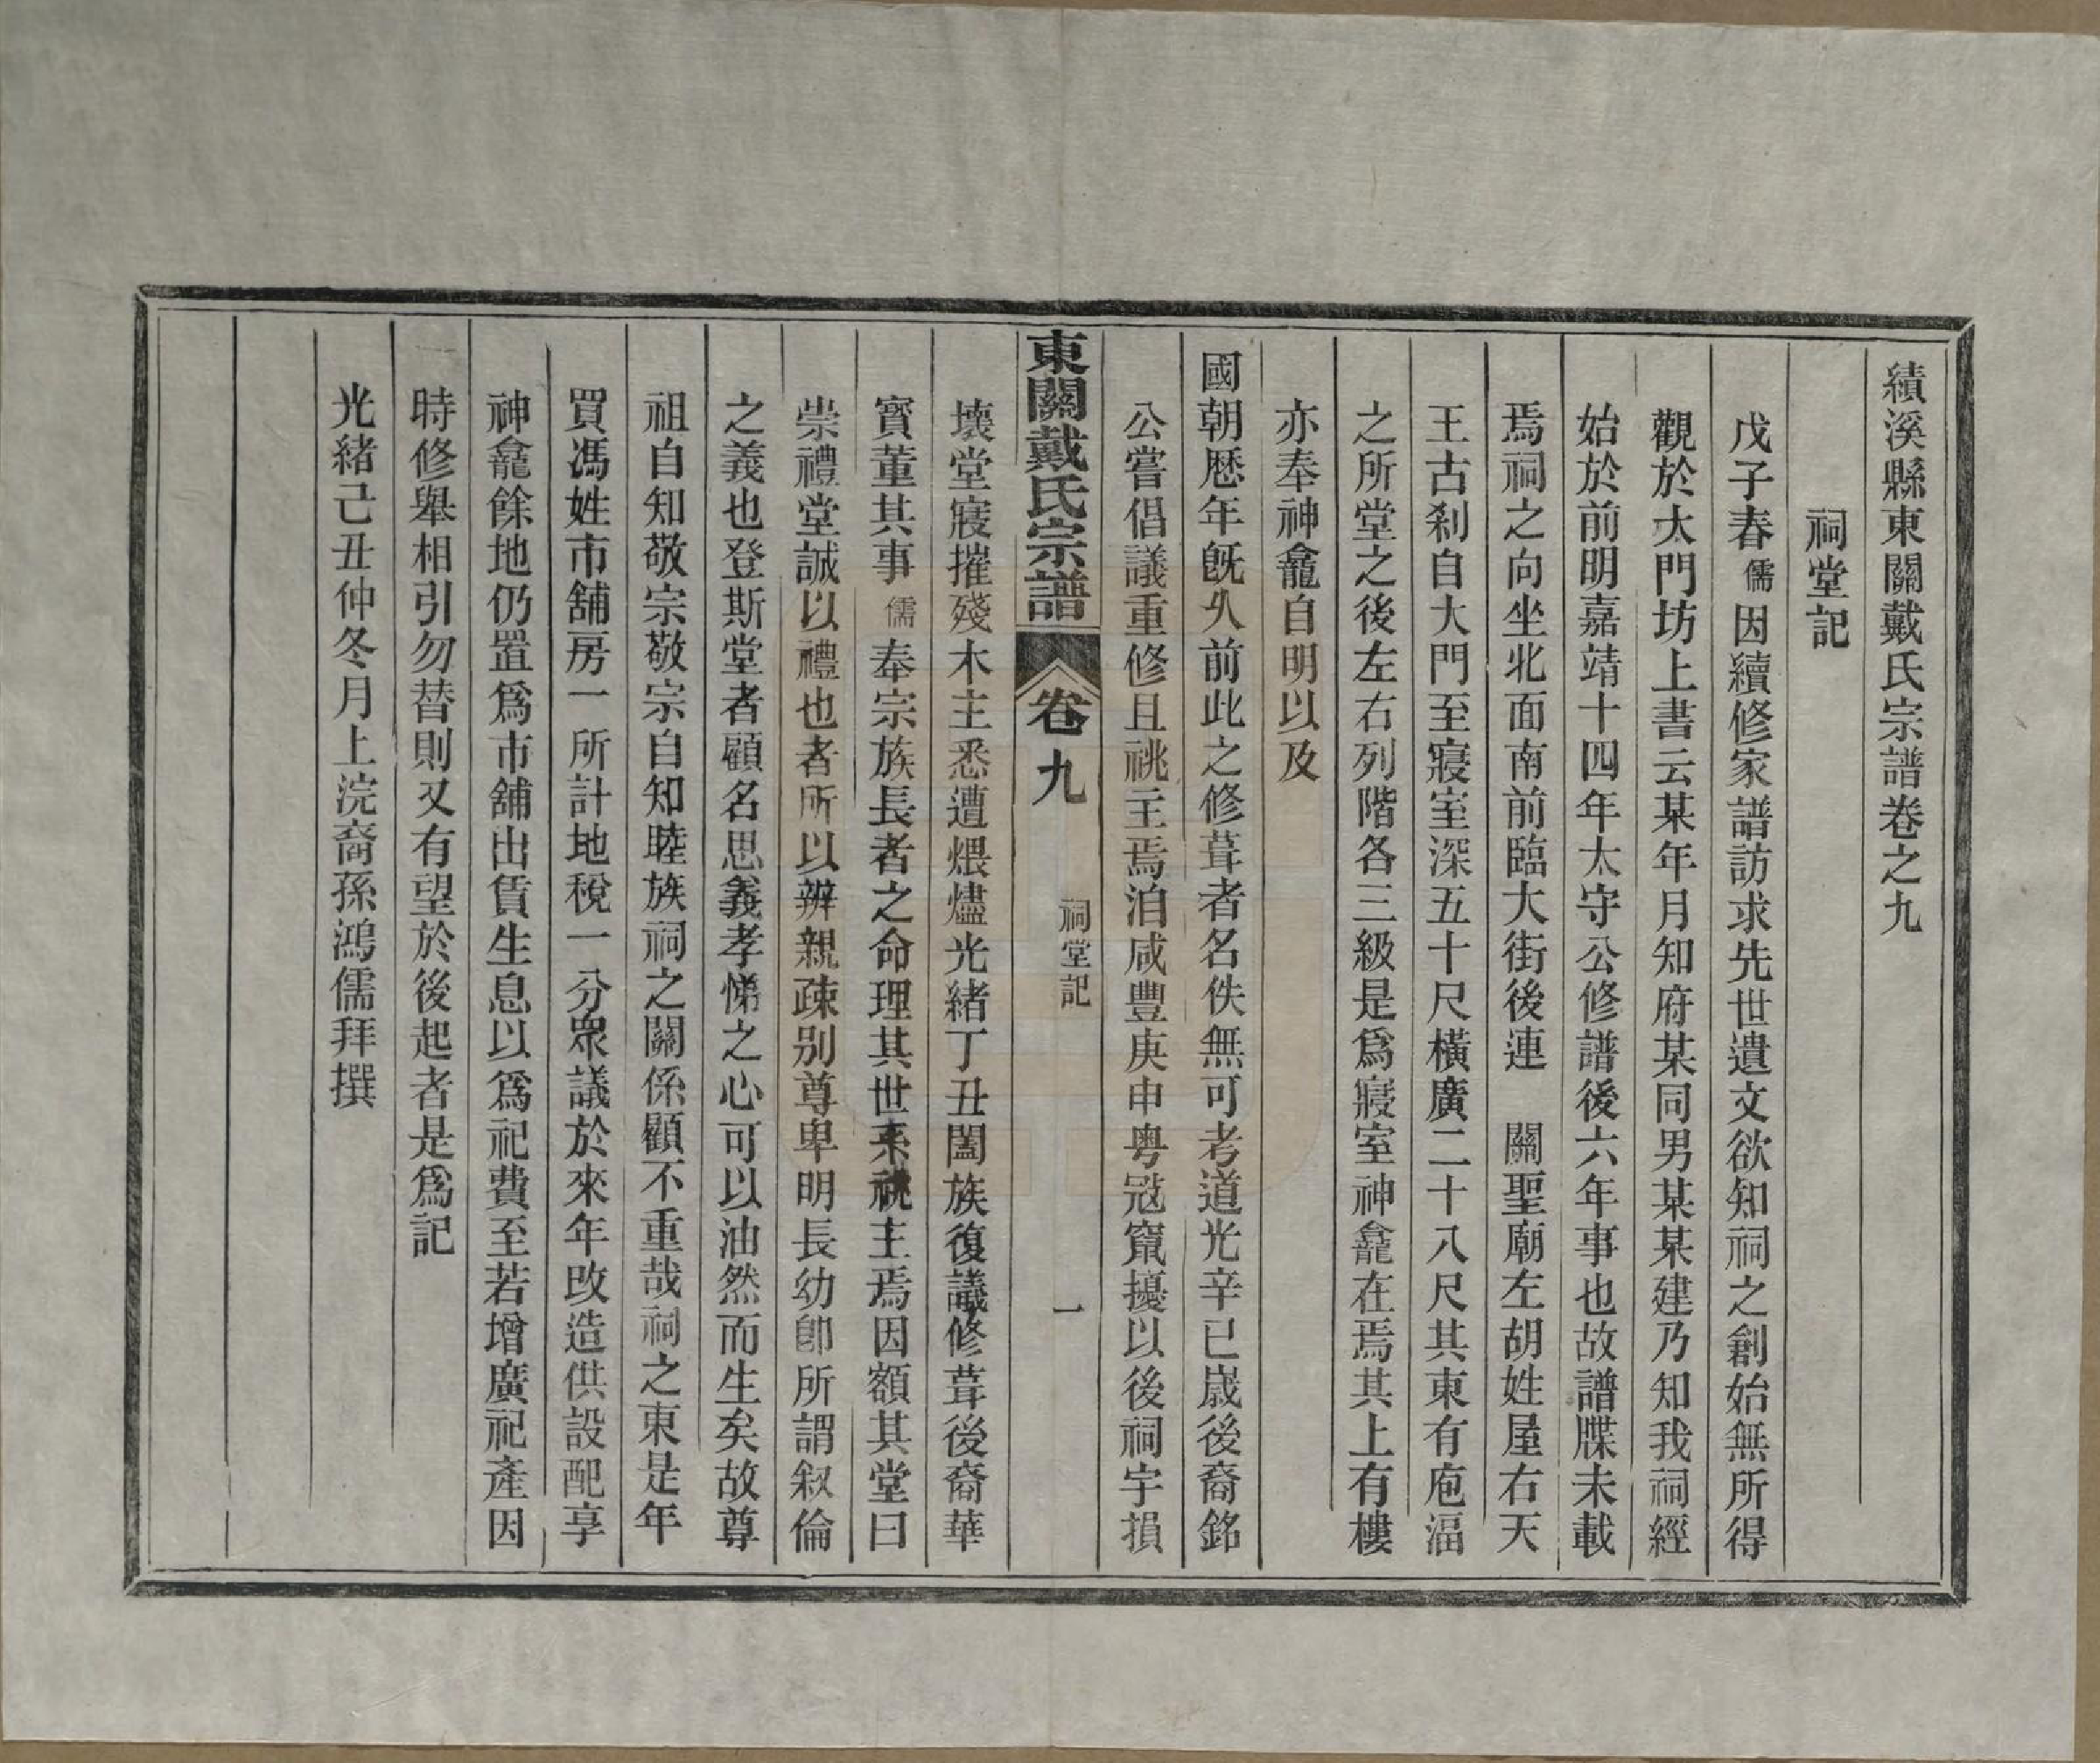 績溪縣東關戴氏宗譜卷之九
祠堂記
戊子春儒因續修家譜訪求先世遺文欲知祠之創始無所得
觀於大門坊上書云某年月知府某同男某某建乃知我祠經
始於前明嘉靖十四年太守公修譜後六年事也故譜牒未載
焉祠之向坐北面南前臨大街後連　關聖廟左胡姓屋右天
王古刹自大門至寢室深五十尺橫廣二十八尺其東有庖湢
之所堂之後左右列階各三級是爲寢室神龕在焉其上有樓
亦奉神龕自明以及
國朝歷年旣久前此之修葺者名佚無可考道光辛已歲後裔銘
公嘗倡議重修且祧主焉洎咸豐庚申粤冦竄擾以後祠宇損
東關戴氏宗譜
卷九
祠堂記
一
壞堂寢摧殘木主悉遭煨燼光緒丁丑闔族復議修葺後裔華
賓董其事儒奉宗族長者之命理其世系祧主焉因額其堂曰
崇禮堂誠以禮也者所以辨親疎别尊卑明長幼卽所謂叙倫
之義也登斯堂者顧名思義孝悌之心可以油然而生矣故尊
祖自知敬宗敬宗自知睦族祠之關係顧不重哉祠之東是年
買馮姓市舖房一所計地稅一分衆議於來年改造供設配享
神龕餘地仍置爲市舖出賃生息以爲祀費至若增廣祀產因
時修舉相引勿替則又有望於後起者是爲記
光緒己丑仲冬月上浣裔孫鴻儒拜撰